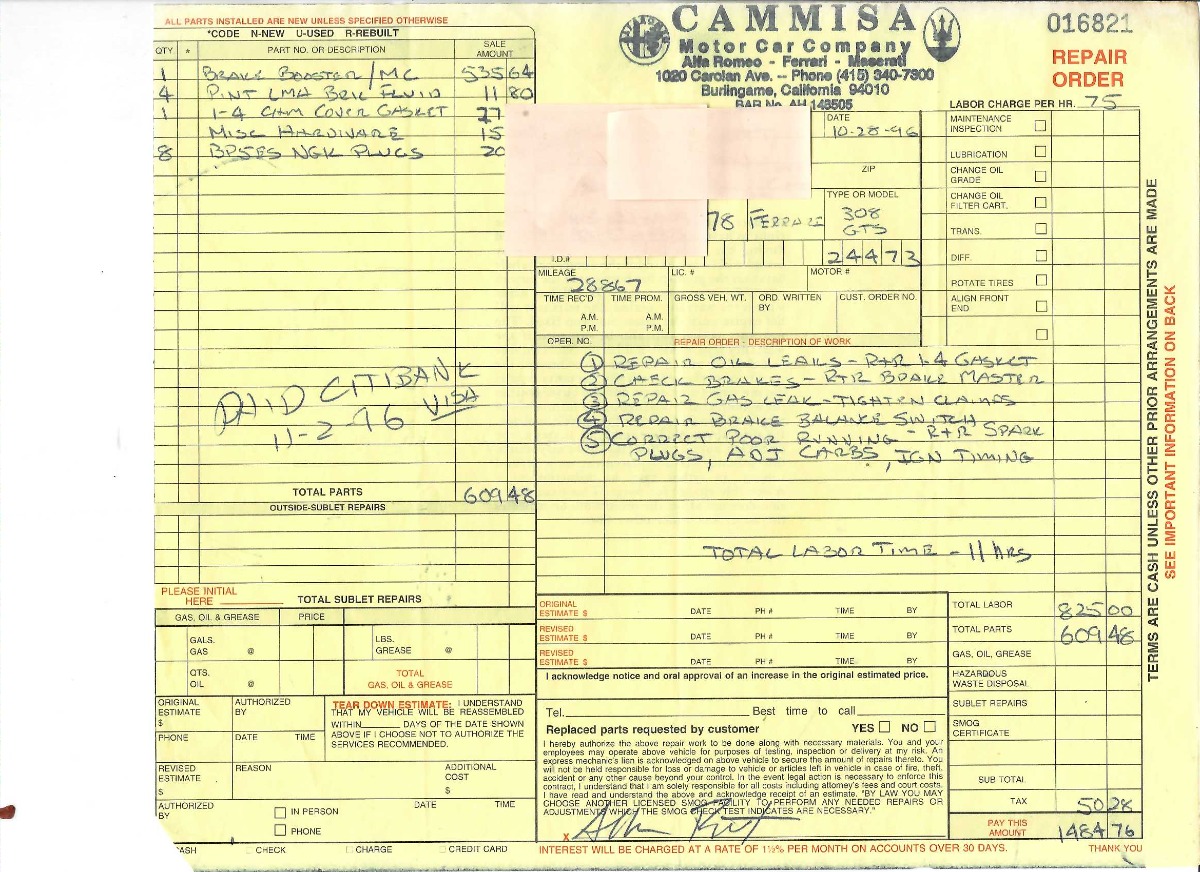 ALL PARTS INSTALLED ARE NEW UNLESS SPECIFIED OTHERWISE
*CODE N-NEW U-USED R-REBUILT
QTY. * PART NO. OR DESCRIPTION SALE AMOUNT
1 BRAKE BOOSTER/MC 535 64
4 PINT LMA BRK FLUID 11 80
1 1-4 CAM COVER GASKET 27
MISC HARDWARE 15
8 BP5ES NGK PLUGS 20
PAID CITIBANK
VISA
11-2-96
TOTAL PARTS 609 48
OUTSIDE-SUBLET REPAIRS
PLEASE INITIAL
HERE TOTAL SUBLET REPAIRS
GAS, OIL & GREASE PRICE
GALS. GAS @ LBS. GREASE @
QTS. OIL @ TOTAL GAS, OIL & GREASE
ORIGINAL ESTIMATE $ AUTHORIZED BY
PHONE DATE TIME
TEAR DOWN ESTIMATE: I UNDERSTAND
THAT MY VEHICLE WILL BE REASSEMBLED
WITHIN DAYS OF THE DATE SHOWN
ABOVE IF I CHOOSE NOT TO AUTHORIZE THE
SERVICES RECOMMENDED.
REVISED ESTIMATE $ REASON ADDITIONAL COST $
AUTHORIZED BY IN PERSON DATE TIME
PHONE
CASH CHECK CHARGE CREDIT CARD
CAMMISA
Motor Car Company
Alfa Romeo - Ferrari - Maserati
1020 Carolan Ave. -- Phone (415) 340-7300
Burlingame, California 94010
BAR No. AH 148505
016821
REPAIR
ORDER
LABOR CHARGE PER HR. 75
DATE
10-28-96
ZIP
TYPE OR MODEL
78 FERRARI 308
GTS
I.D.# 24473
MILEAGE LIC. # MOTOR #
28867
TIME REC'D TIME PROM. GROSS VEH. WT. ORD. WRITTEN BY CUST. ORDER NO.
A.M. A.M.
P.M. P.M.
MAINTENANCE INSPECTION
LUBRICATION
CHANGE OIL GRADE
CHANGE OIL FILTER CART.
TRANS.
DIFF.
POTATE TIRES
ALIGN FRONT END
OPER. NO. REPAIR ORDER - DESCRIPTION OF WORK
1 REPAIR OIL LEAKS - R+R 1-4 GASKET
2 CHECK BRAKES - R+R BRAKE MASTER
3 REPAIR GAS LEAK - TIGHTEN CLAMPS
4 REPAIR BRAKE BALANCE SWITCH
5 CORRECT POOR RUNNING - R+R SPARK
PLUGS, ADJ CARBS, IGN TIMING
TOTAL LABOR TIME - 11 HRS
ORIGINAL ESTIMATE $ DATE PH # TIME BY
REVISED ESTIMATE $ DATE PH # TIME BY
REVISED ESTIMATE $ DATE PH # TIME BY
I acknowledge notice and oral approval of an increase in the original estimated price.
Tel. Best time to call
Replaced parts requested by customer YES NO
I hereby authorize the above repair work to be done along with necessary materials. You and your
employees may operate above vehicle for purposes of testing, inspection or delivery at my risk. An
express mechanic's lien is acknowledged on above vehicle to secure the amount of repairs thereto. You
will not be held responsible for loss or damage to vehicle or articles left in vehicle in case of fire, theft,
accident or any other cause beyond your control. In the event legal action is necessary to enforce this
contract, I understand that I am solely responsible for all costs including attorney's fees and court costs.
I have read and understand the above and acknowledge receipt of an estimate. "BY LAW YOU MAY
CHOOSE ANOTHER LICENSED SMOG FACILITY TO PERFORM ANY NEEDED REPAIRS OR
ADJUSTMENTS WHICH THE SMOG CHECK TEST INDICATES ARE NECESSARY."
X
INTEREST WILL BE CHARGED AT A RATE OF 1½% PER MONTH ON ACCOUNTS OVER 30 DAYS.
TOTAL LABOR 825 00
TOTAL PARTS 609 48
GAS, OIL, GREASE
HAZARDOUS WASTE DISPOSAL
SUBLET REPAIRS
SMOG CERTIFICATE
SUB TOTAL
TAX 50 28
PAY THIS AMOUNT 1484 76
THANK YOU
TERMS ARE CASH UNLESS OTHER PRIOR ARRANGEMENTS ARE MADE
SEE IMPORTANT INFORMATION ON BACK